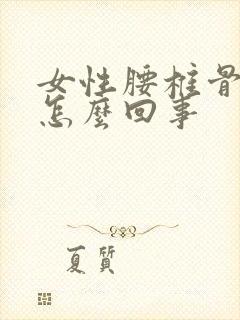 女性腰椎骨
怎麼回事
夏質